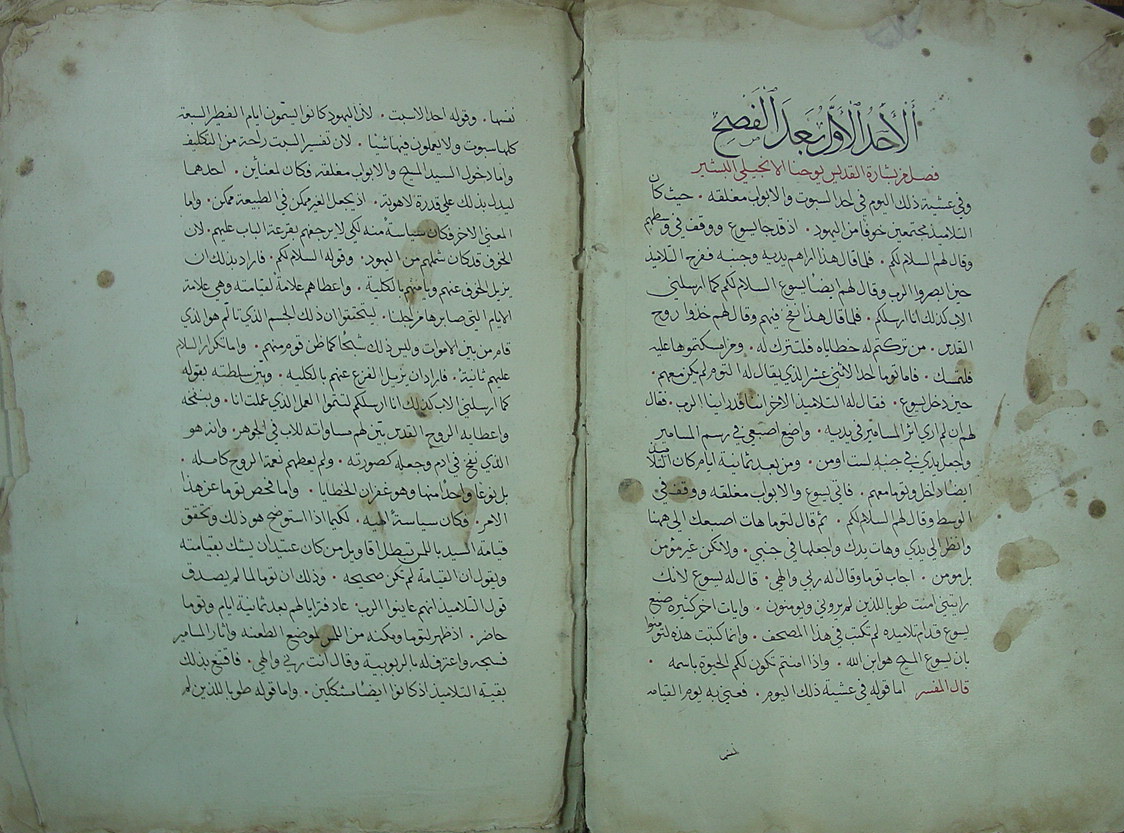 اَلْأَحَدُ الْأَوَّلُ بَعْدَ الْفَصْحِ
فصل من بشارة القديس يوحنا الانجيلي البشير
وفي عشية ذلك اليوم في احد السبوت والابواب مغلقه • حيث كان
التلاميذ مجتمعين خوفا من اليهود • اذ قد جا يسوع ووقف في وسطهم
وقال لهم السلام لكم • فلما قال هذا اراهم يديه وجنبه ففرح التلاميذ
حين ابصروا الرب وقال لهم ايضا يسوع السلام لكم كما ارسلني
الاب كذلك انا ارسلكم • فلما قال هذا نفخ فيهم وقال لهم خذوا روح
القدس • من تركتم له خطاياه فلتترك له • ومن امسكتموها عليه
فلتمسك • فاما توما احد الاثني عشر الذي يقال له التوم لم يكن معهم •
حين دخل يسوع • فقال له التلاميذ الاخر اننا قد راينا الرب • فقال
لهم ان لم اري اثر المسامير في يديه • واضع اصبعي في رسم المسامير
واجعل يدي في جنبه لست اومن • ومن بعد ثمانية ايام كان التلاميذ
ايضا داخل وتوما معهم • فاتي يسوع والابواب مغلقه ووقف في
الوسط وقال لهم السلام لكم • ثم قال لتوما هات اصبعك الى ههنا
وانظر الى يدي وهات يدك واجعلها في جنبي • ولا تكن غير مومن
بل مومن • اجاب توما وقال له ربي والهي • قال له يسوع لانك
رايتني امنت طوبا للذين لم يروني ويومنون • وايات اخر كثيرة صنع
يسوع قدام تلاميذه لم تكتب في هذا المصحف • وانما كتبت هذه لتومنوا
بان يسوع المسيح هو ابن الله • واذا امنتم تكون لكم الحيوة باسمه •
قال المفسر اما قوله في عشية ذلك اليوم • فعني به يوم القيامه
نفسها • وقوله احد السبت • لان اليهود كانوا يسمون ايام الفطر السبعة
كلها سبوت ولا يعملون فيها شيئا • لان تفسير السبت راحة من التكليف
واما دخول السيد المسيح والابواب مغلقه فكان لمعنائين • احدهما
ليدل بذلك على قدرة لاهوته • اذ يجعل الغير ممكن في الطبيعة ممكن • واما
المعنى الاخر فكان سياسة منه لكي لا يرجعهم بقرعة الباب عليهم • لان
الخوف قد كان شملهم من اليهود • وقوله السلام لكم • فاراد بذلك ان
يزيل الخوف عنهم ويامنهم بالكلية • واعطاهم علامة لقيامته وهي علامة
الالام التي صابرها من اجلنا • ليتحققوا ان ذلك الجسم الذي تالم هو الذي
قام من بين الاموات وليس ذلك شبحا كما ظن قوم منهم • واما تكرار السلام
عليهم ثانية • فاراد ان يزيل الفزع عنهم بالكلية • وبين سلطته بقوله
كما ارسلني الاب كذلك انا ارسلكم لتتموا العمل الذي عملت انا • وبنفخه
واعطايه الروح القدس بين لهم مساواته للاب في الجوهر • وانه هو
الذي نفخ في ادم وجعله كصورته • ولم يعطهم نعمة الروح كامله •
بل نوعا واحدا منها وهو غفران الخطايا • واما فحص توما عن هذا
الامر • فكان سياسة الهيه • لكيما اذا استوضح هو ذلك وتحقق
قيامة السيد باللمس تبطل اقاويل من كان عتيدان يشك بقيامته
ويقول ان القيامة لم تكن صحيحه • وذلك ان توما لما لم يصدق
قول التلاميذ انهم عاينوا الرب • عاد فترايا لهم بعد ثمانية ايام وتوما
حاضر • اذ ظهر لتوما ومكنه من اللمس لموضع الطعنه واثار المسامير
فسجد واعترف له بالربوبية وقال انت ربي والهي • فاقتنع بذلك
بقية التلاميذ اذ كانوا ايضا مشككين • واما قوله طوبا للذين لم